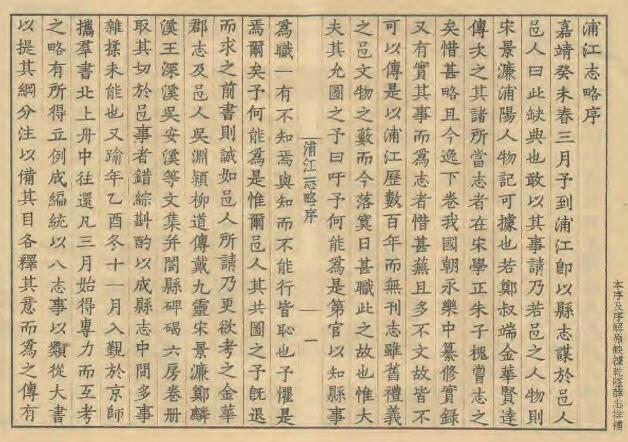 浦江志略序
嘉靖癸未春三月予到浦江卽以縣志謀於邑人
邑人曰此缺典也敢以其事請乃若邑之人物則
宋景濂浦陽人物記可據也若鄭叔端金華賢達
傳次之其諸所當志者在宋學正朱子槐嘗志之
矣惜甚略且今逸下卷我國朝永樂中纂修實錄
又有實其事而爲志者惜甚蕪且多不文故皆不
可以傳是以浦江歷數百年而無刊志雖舊禮義
之邑文物之藪而今落寞日甚職此之故也惟大
夫其允圖之予曰吁予何能爲是第官以知縣事
浦江志略序
一
爲職一有不知焉與知而不能行皆恥也予懼是
焉爾矣予何能爲是惟爾邑人其共圖之予旣退
而求之前書則誠如邑人所請乃更欲考之金華
郡志及邑人吳淵穎柳道傳戴九靈宋景濂鄭麟
溪王深溪吳安溪等文集并閤縣碑碣六房卷册
取其切於邑事者錯綜斟酌以成縣志中間多事
雜揉未能也又踰年乙酉冬十一月入覲於京師
攜羣書北上舟中往還凡三月始得專力而互考
之略有所得立例成編統以八志事以類從大書
以提其綱分注以備其目各釋其意而爲之傳有
本序及序解原缺據乾隆薛志掛補